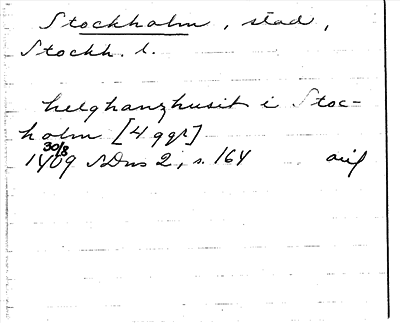 Stockholm, stad,
Stockh. l.
helghanzhusit i Stoc-
holm [4 ggr]
30/8
1409 SDns 2, s. 164 orig